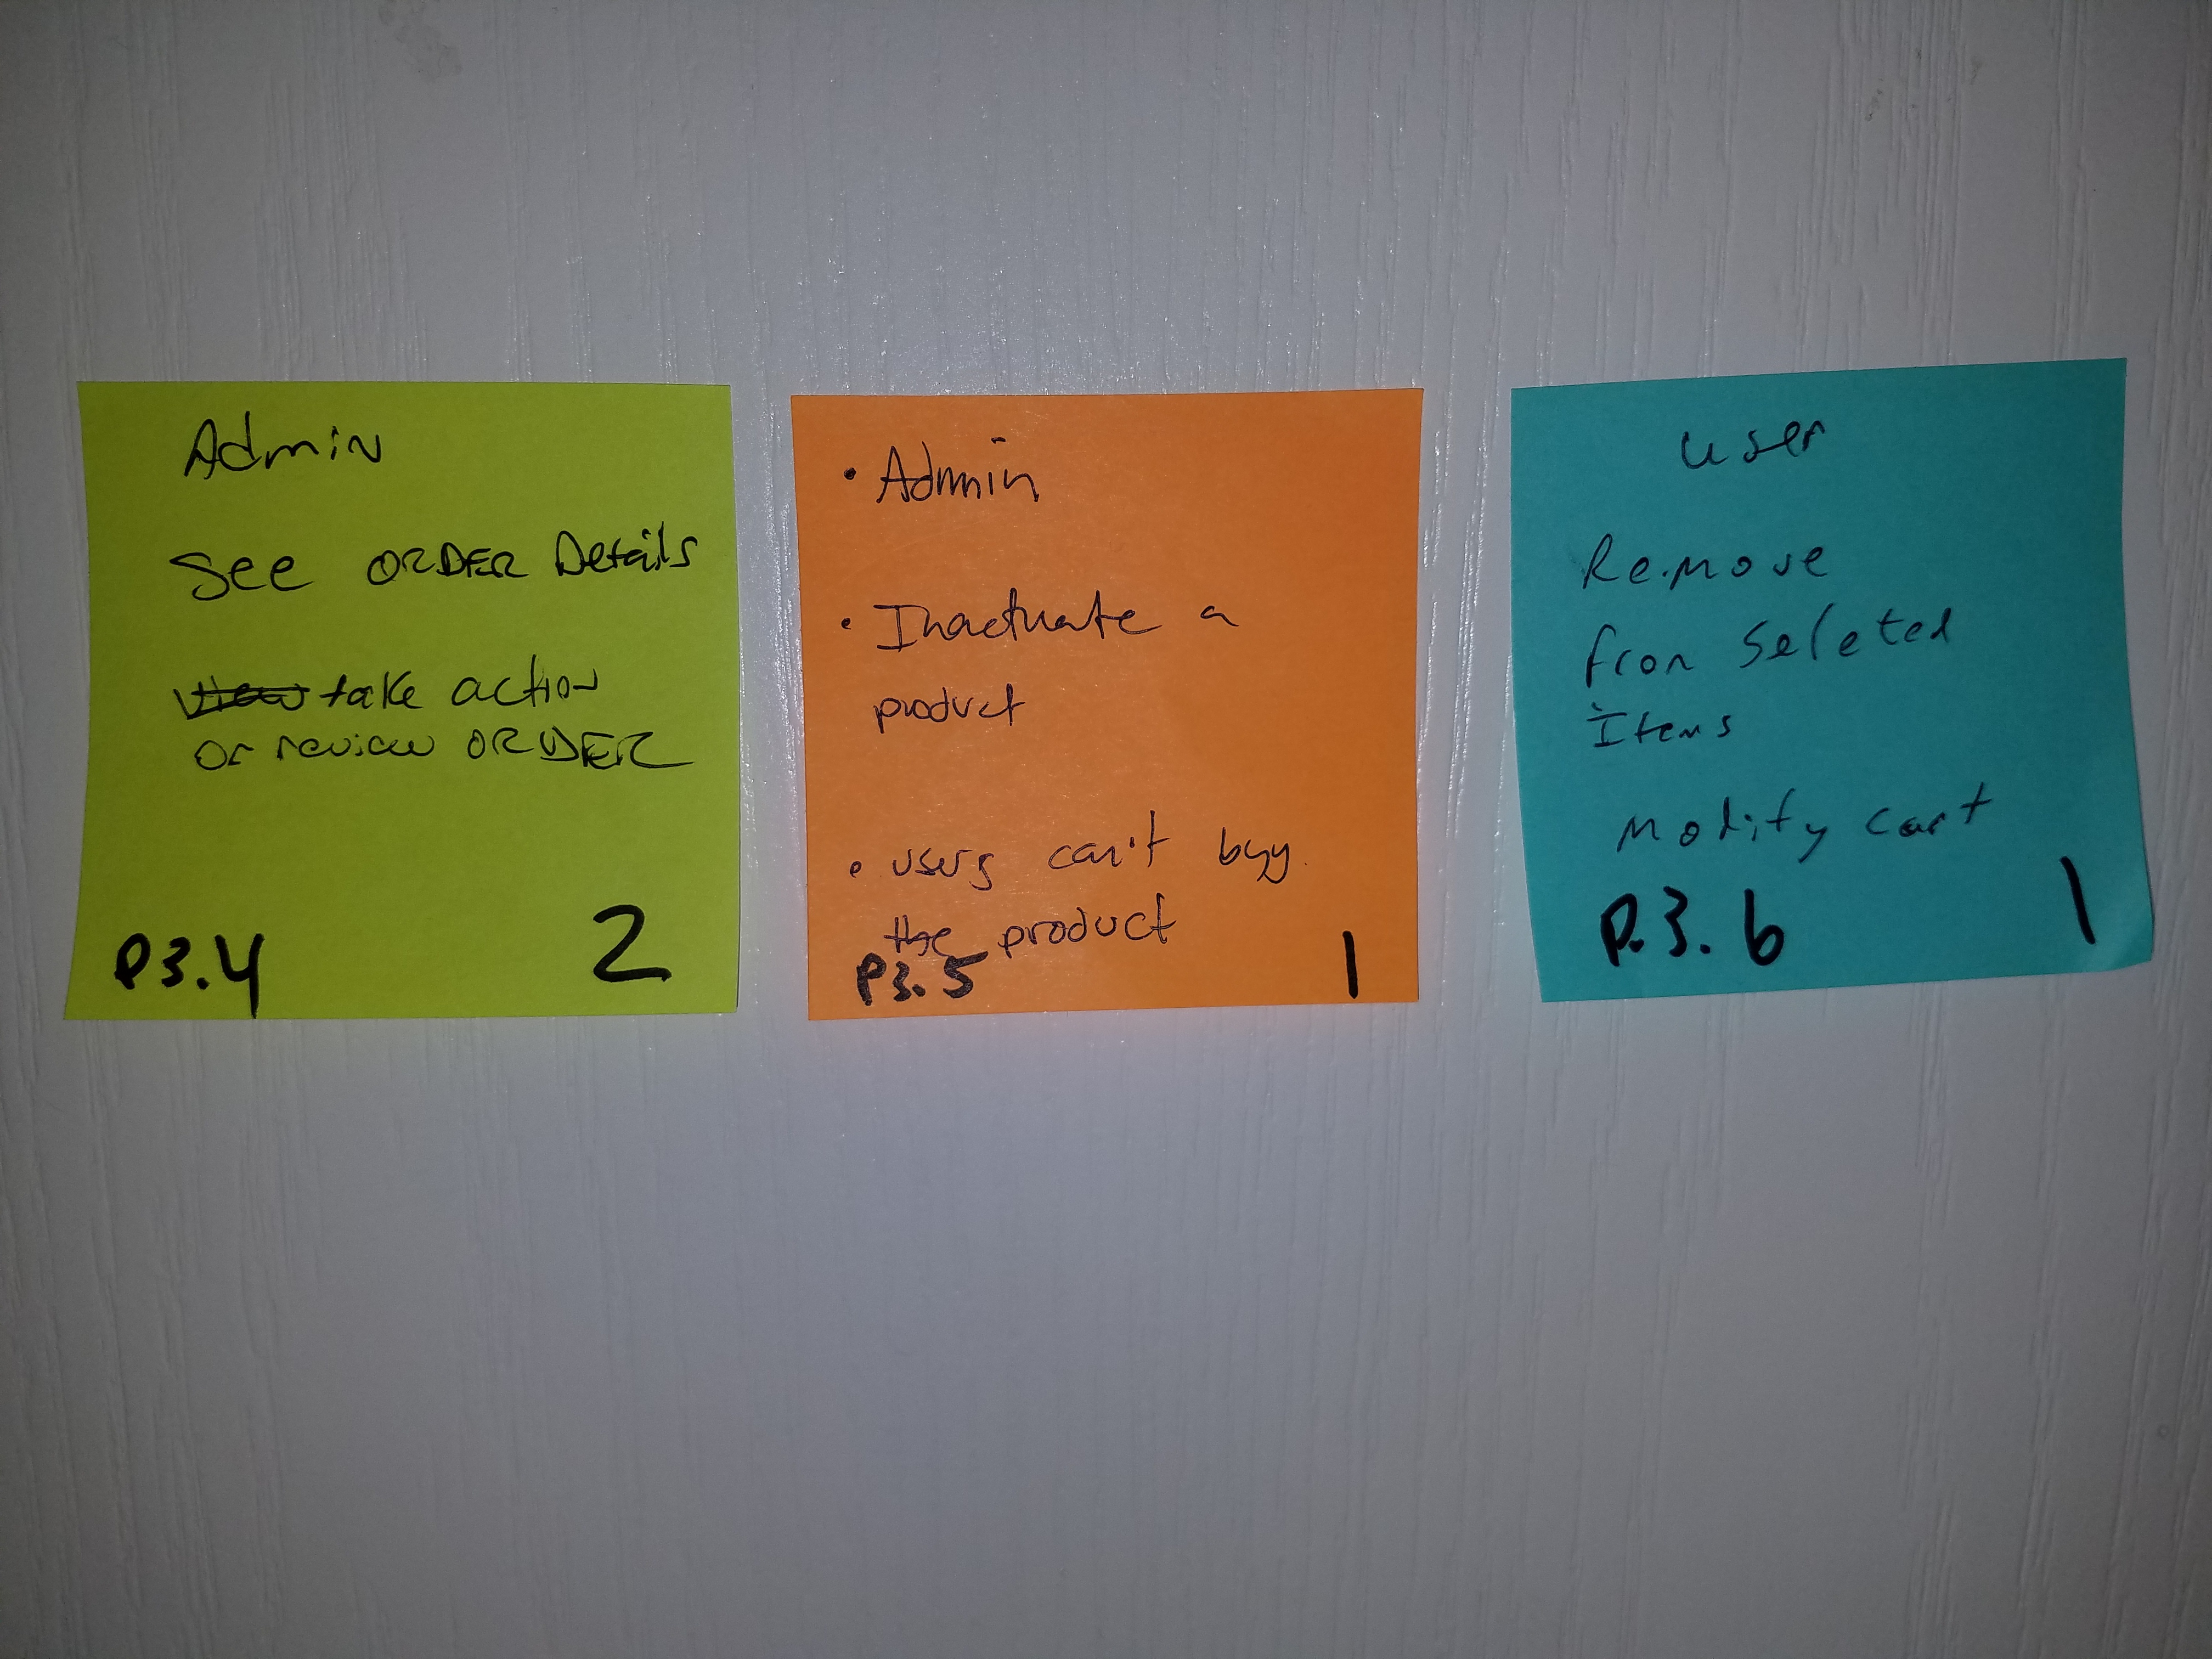 Admin
See ORDER Details
view take action
or review ORDER
P3.4 2
• Admin
• Inactivate a
product
• users can't buy
the product
P3.5 1
user
Remove
from Seleted
Items
Modify cart
P.3.6 1